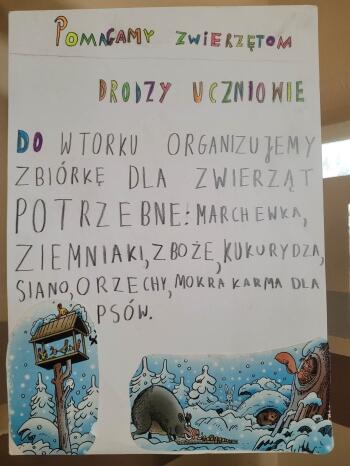 POMAGAMY ZWIERZĘTOM
DRODZY UCZNIOWIE
DO WTORKU ORGANIZUJEMY
ZBIÓRKĘ DLA ZWIERZĄT
POTRZEBNE: MARCHEWKA,
ZIEMNIAKI, ZBOŻE, KUKURYDZA,
SIANO, ORZECHY, MOKRA KARMA DLA
PSÓW.